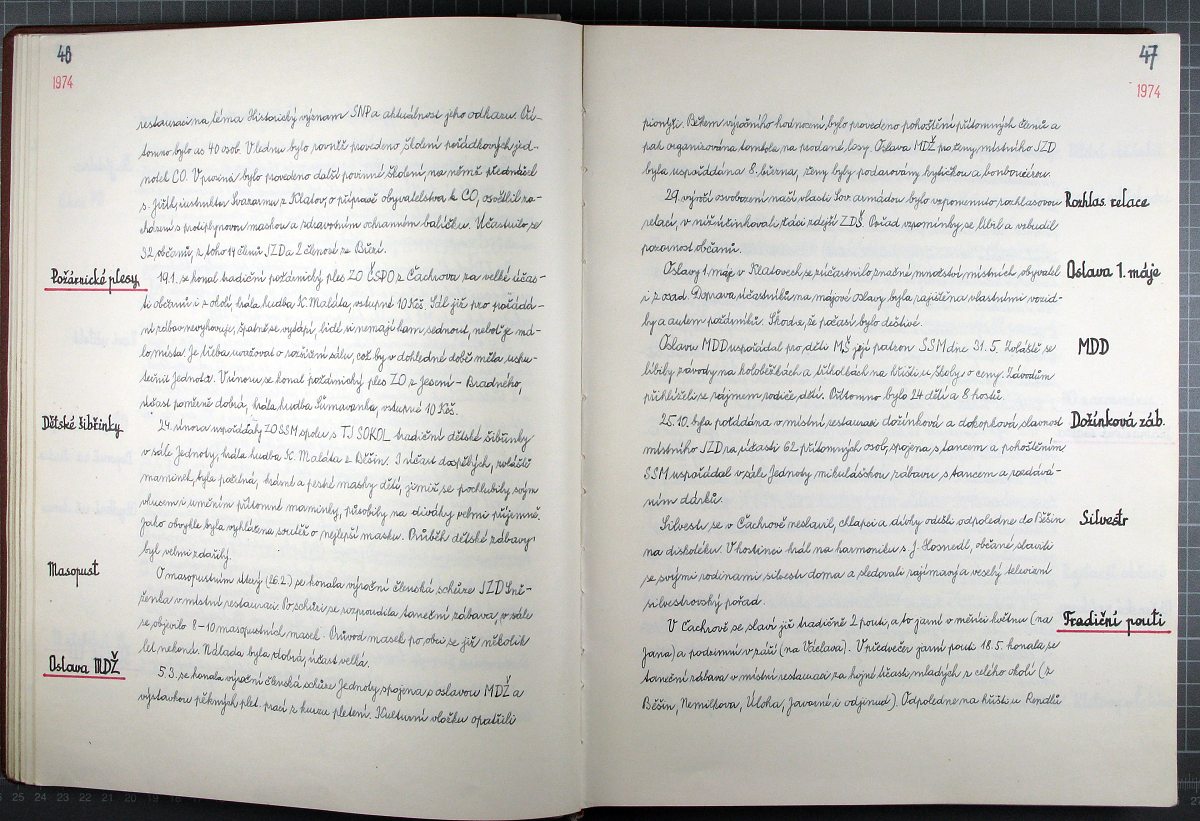 46
1974
restauraci na téma Historický význam SNP a aktuálnost jeho odkazu. Pří-
tomno bylo as 40 osob. V lednu bylo rovněž provedeno školení pořádkových jed-
notek CO. V provedeno další povinné školení, na němž přednášel
s. instruktor Svazarmu z Klatov, o přípravě obyvatelstva k CO, osvětlil za-
cházení s protiplynovou maskou a zdravotním ochranným balíčku. Účastnilo se
32 občanů, z toho 14 členů JZD a 2 členové ze
Požárnické plesy
19.1. se konal tradiční požárnický ples ZO ČSPO z Čachrova za velké účas-
ti občanů i z okolí, hrála hudba K. Maláta, vstupné 10 Kčs. Sál již pro pořádá-
ní zábav nevyhovuje, špatně se vytápí, lidé si nemají kam sednout, neboť je má-
lo místa. Je třeba uvažovat o rozšíření sálu, což by v dohledné době měla usku-
tečnit Jednota. V únoru se konal požárnický ples ZO z Jesení - Bradného,
účast poměrně dobrá, hrála hudba Šumavanka, vstupné 10 Kčs.
Dětské šibřinky
24. února uspořádaly ZO SSM spolu s TJ SOKOL tradiční dětské šibřinky
v sále Jednoty, hrála hudba K. Maláta z Běšin. I účast dospělých, zvláště
maminek, byla pěkná, krásné a pestré masky dětí, jimiž se pochlubily svým
vkusem i uměním přítomné maminky, působily na diváky velmi příjemně.
Jako obvykle byla vyhlášena soutěž o nejlepší masku. Průběh dětské zábavy
byl velmi zdařilý.
Masopust
O masopustním úterý (26.2.) se konala výroční členská schůze JZD Sně-
ženka v místní restauraci. Po schůzi se rozproudila taneční zábava, v sále
se objevilo 8-10 masopustních masek. Průvod masek po obci se již několik
let nekoná. Nálada byla dobrá, účast velká.
Oslava MDŽ
5.3. se konala výroční členská schůze Jednoty spojena s oslavou MDŽ a
výstavkou pěkných plet. prací z kurzu pletení. Kulturní vložku opatřili
47
1974
pionýři. Během výročního hodnocení bylo provedeno pohoštění přítomných členů a
pak organizována tombola na prodané losy. Oslava MDŽ pro ženy místního JZD
byla uspořádána 8. března, ženy byly podarovány kytičkou a bonboniérou.
Rozhlas. relace
29. výročí osvobození naší vlasti Sov. armádou bylo vzpomenuto rozhlasovou
relací, v níž účinkovali žáci zdejší ZDŠ. Pořad vzpomínky se líbil a vzbudil
pozornost občanů.
Oslava 1. máje
Oslavy 1. máje v Klatovech se zúčastnilo značné množství místních obyvatel
i z osad. Doprava účastníků na májové oslavy byla zajištěna vlastními vozid-
ly a autem požárníků. Škoda, že počasí bylo deštivé.
MDD
Oslavu MDD uspořádal pro děti MŠ její patron SSM dne 31.5. Zvláště se
líbily závody na koloběžkách a tříkolkách na hřišti u školy o ceny. Závodům
přihlíželi se zájmem rodiče dětí. Přítomno bylo 24 dětí a 8 hostů.
Dožínková záb.
25.10. byla pořádána v místní restauraci dožínková a dokopková slavnost
místního JZD za účasti 62 přítomných osob, spojena s tancem a pohoštěním
SSM uspořádal v sále Jednoty mikulášskou zábavu s tancem a rozdává-
ním dárků.
Silvestr
Silvestr se v Čachrově neslavil, chlapci a dívky odešli odpoledne do Běšin
na diskotéku. V hostinci hrál na harmoniku s. J. Hosnedl, občané slavili
se svými rodinami silvestr doma a sledovali zajímavý a veselý televizní
silvestrovský pořad.
Tradiční pouti
V Čachrově se slaví již tradičně 2 pouti, a to jarní v měsíci květnu (na
Jana) a podzimní v září (na Václava). V předvečer jarní pouti 18.5. konala se
taneční zábava v místní restauraci za hojné účasti mladých z celého okolí (z
Běšin, Nemilkova, Úloha, Javorné i odjinud). Odpoledne na hřišti u Rendlů